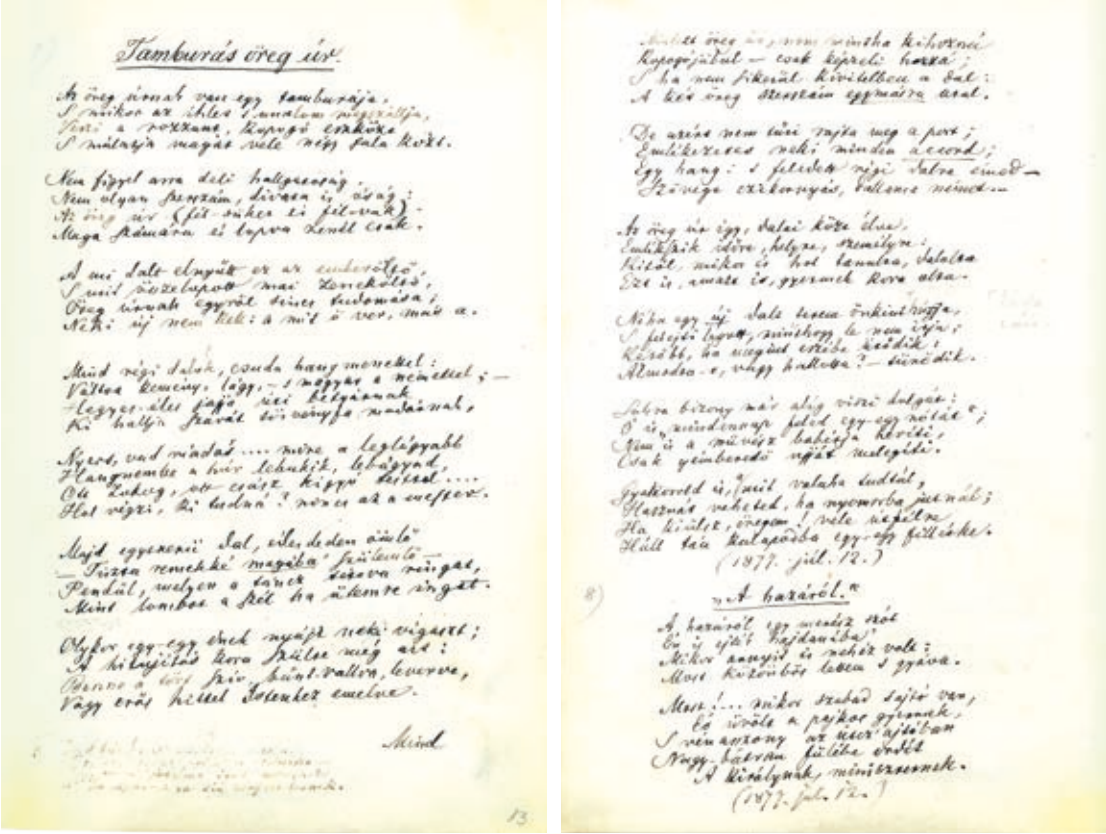 Tamburás öreg úr.
Az öreg úrnak van egy tamburája,
S mikor az ihlet s unalom megszállja,
Veszi a rozzant, kopogó eszközt
S múlatja magát vele négy fala közt.
Nem figyel arra deli hallgatóság,
Nem olyan szerszám, divata is óság:
Az öreg úr (fél-süket és fél-vak)
Maga számára és lopva zenél csak.
A mi dalt elnyűtt ez az emberöltő,
S mit összelopott mai zeneköltő,
Öreg úrnak egyről sincs tudomása;
Neki új nem kell: a mit ő ver, más a.
Mind régi dalok, csuda hangmenettel:
Váltva kemény, lágy, – s magyar a némettel; –
Hegyes-éles jajjá úti betyárnak
Ki hallja szavát törvényfa-madárnak,
Nyers, vad riadás .... mire a leglágyabb
Hangnembe a húr lebukik, lebágyad,
Ott zokog, ott csúsz kígyó testtel ....
Hol végzi, ki tudná? nincs az a mester.
Majd egyszerű dal, édesdeden ömlő
– Tiszta remekké magába' szülemlő –
Pendül, melyen a tánc tétova ringat,
Mint lombot a szél ha ütemre ingat.
Olykor egy-egy ének nyújt neki vigaszt;
A hitújítás kora szülte még azt:
Benne a tört szív, bűnt-vallva, leverve,
Vagy erős hittel Istenhez emelve.
Mind
13
öreg úr, nem mintha kihozná
Kopogójábul – csak képzeli hozzá;
S ha nem sikerül kivitelben a dal:
A két öreg szerszám egymásra utal.
De azért nem tűri rajta meg a port;
Emlékezetes neki minden accord;
Egy hang: s feledett régi dalra émed –
Szövege czikornyás, dallama német. –
Az öreg úr így, dalai közt élve,
Emlékszik időre, helyre, személyre:
Kitől, mikor és hol tanulta, dalolta
Ezt is, amazt is, gyermek kora olta.
Néha egy új dalt terem önkint húrja,
S felejti legott, minthogy le nem írja;
Később, ha megint eszébe ködlik:
Álmodta-e, vagy hallotta? – tűnődik.
Sokra bizony már alig viszi dolgát:
Ő is mindennap feled egy-egy nótát";
Nem is a művész babérja hevíti,
Csak gémberedő ujját melegíti.
Gyakorold is, mit valaha tudtál,
Hasznát veheted, ha nyomorba jutnál;
Ha kiülsz, öregem! vele útfélre
Hullt tán kalapodba egy-egy fillérke.
(1877. júl. 12.)
8)
„A hazáról."
A hazáról egy merész szót
Én is ejték hajdanába'
Mikor annyit és nehéz volt:
Most közönbös lettem s gyáva.
Most!... mikor szabad sajtó van,
És üvölt a pajkos gyermek,
S vénasszony az utcz'ajtóban
Nagy-bátran fülébe ordít
A királynak, miniszternek.
(1877. júl. 12.)